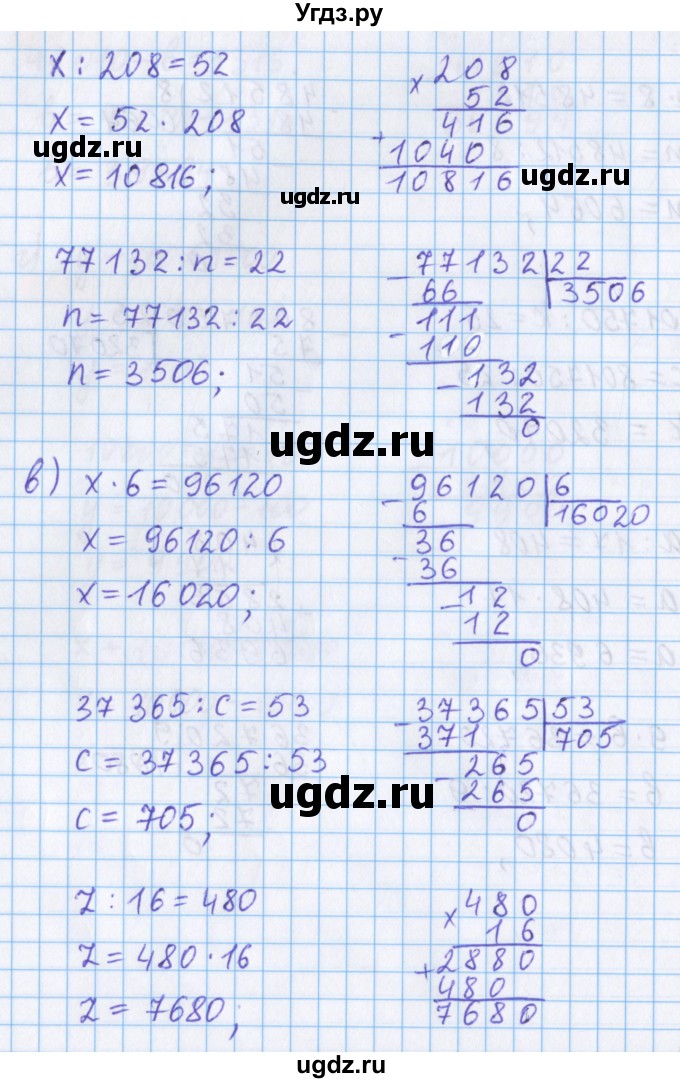 Угдз.ру
x : 208 = 52
x = 52 · 208
x = 10816;
× 208
52
416
+ 1040
10816
ugdz.ru
ugdz.ru
ugdz.ru
77132 : n = 22
n = 77132 : 22
n = 3506;
- 77132 | 22
66 | 3506
- 111
110
- 132
132
0
ugdz.ru
в) x · 6 = 96120
x = 96120 : 6
x = 16020;
- 96120 | 6
6 | 16020
- 36
36
- 12
12
0
37365 : c = 53
c = 37365 : 53
c = 705;
- 37365 | 53
371 | 705
- 265
265
0
ugdz.ru
z : 16 = 480
z = 480 · 16
z = 7680;
× 480
16
+ 2880
480
7680
ugdz.ru